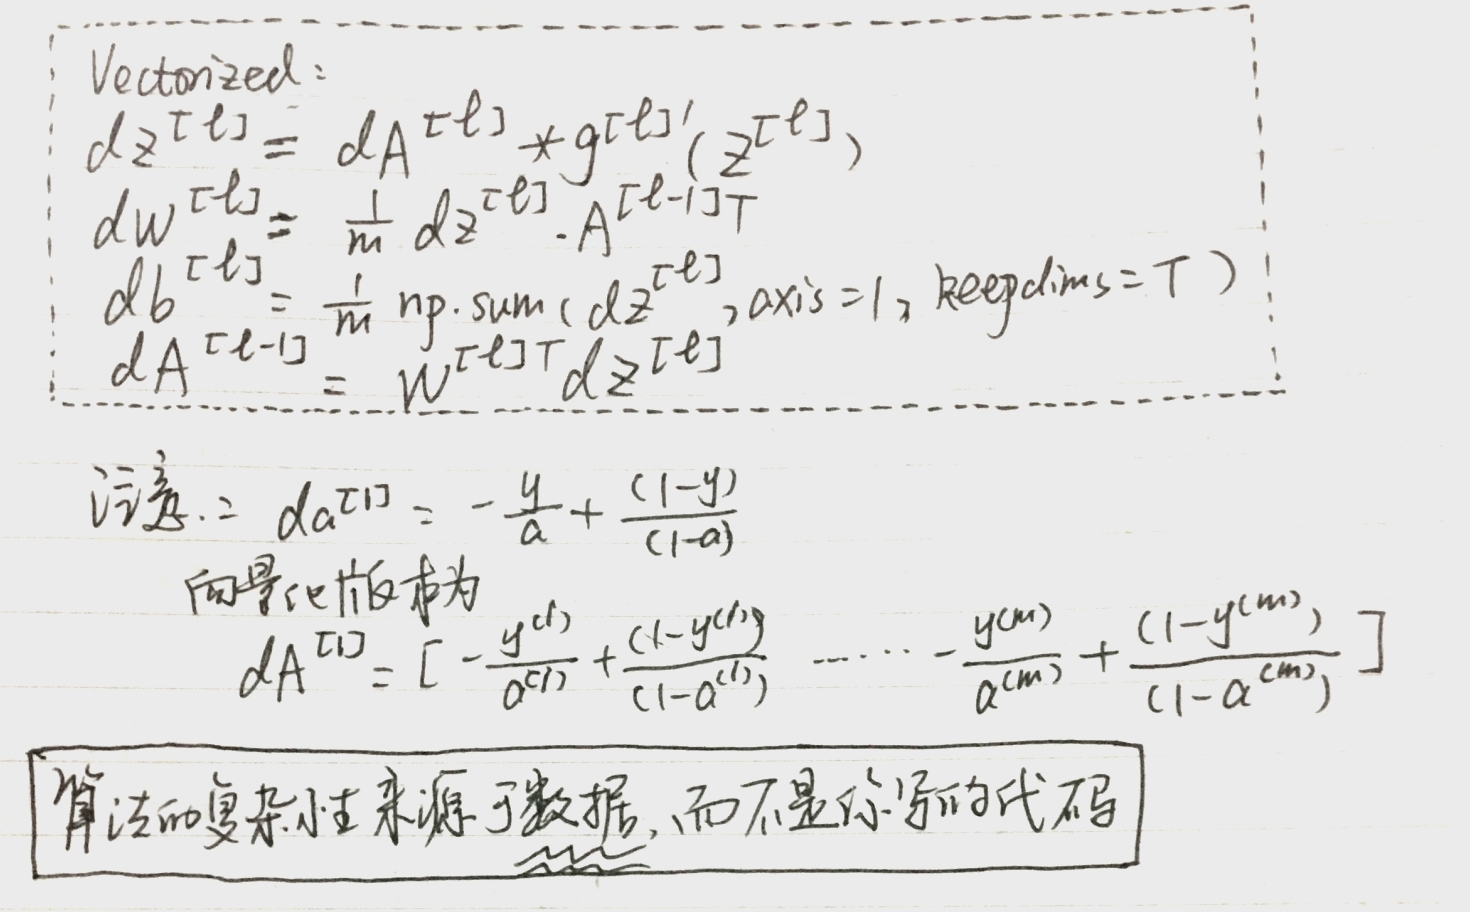 Vectorized:
dz^[l] = dA^[l] * g^[l]'(z^[l])
dw^[l] = 1/m dz^[l] · A^[l-1]T
db^[l] = 1/m np.sum(dz^[l], axis=1, keepdims=T)
dA^[l-1] = W^[l]T dz^[l]
注意: da^[1] = -y/a + (1-y)/(1-a)
向量化版本为
dA^[1] = [-y^(1)/a^(1) + (1-y^(1))/(1-a^(1)) ······ -y^(m)/a^(m) + (1-y^(m))/(1-a^(m))]
算法的复杂性来源于数据,而不是你写的代码